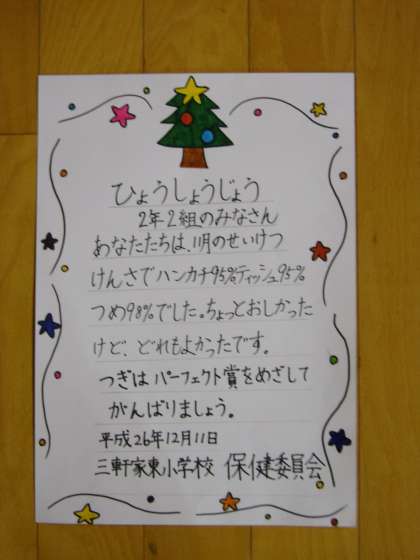 ひょうしょうじょう
2年2組のみなさん
あなたたちは、11月のせいけつ
けんさでハンカチ95%ティッシュ95%
つめ98%でした。ちょっとおしかった
けど、どれもよかったです。
つぎはパーフェクト賞をめざして
がんばりましょう。
平成26年12月11日
三軒家東小学校 保健委員会